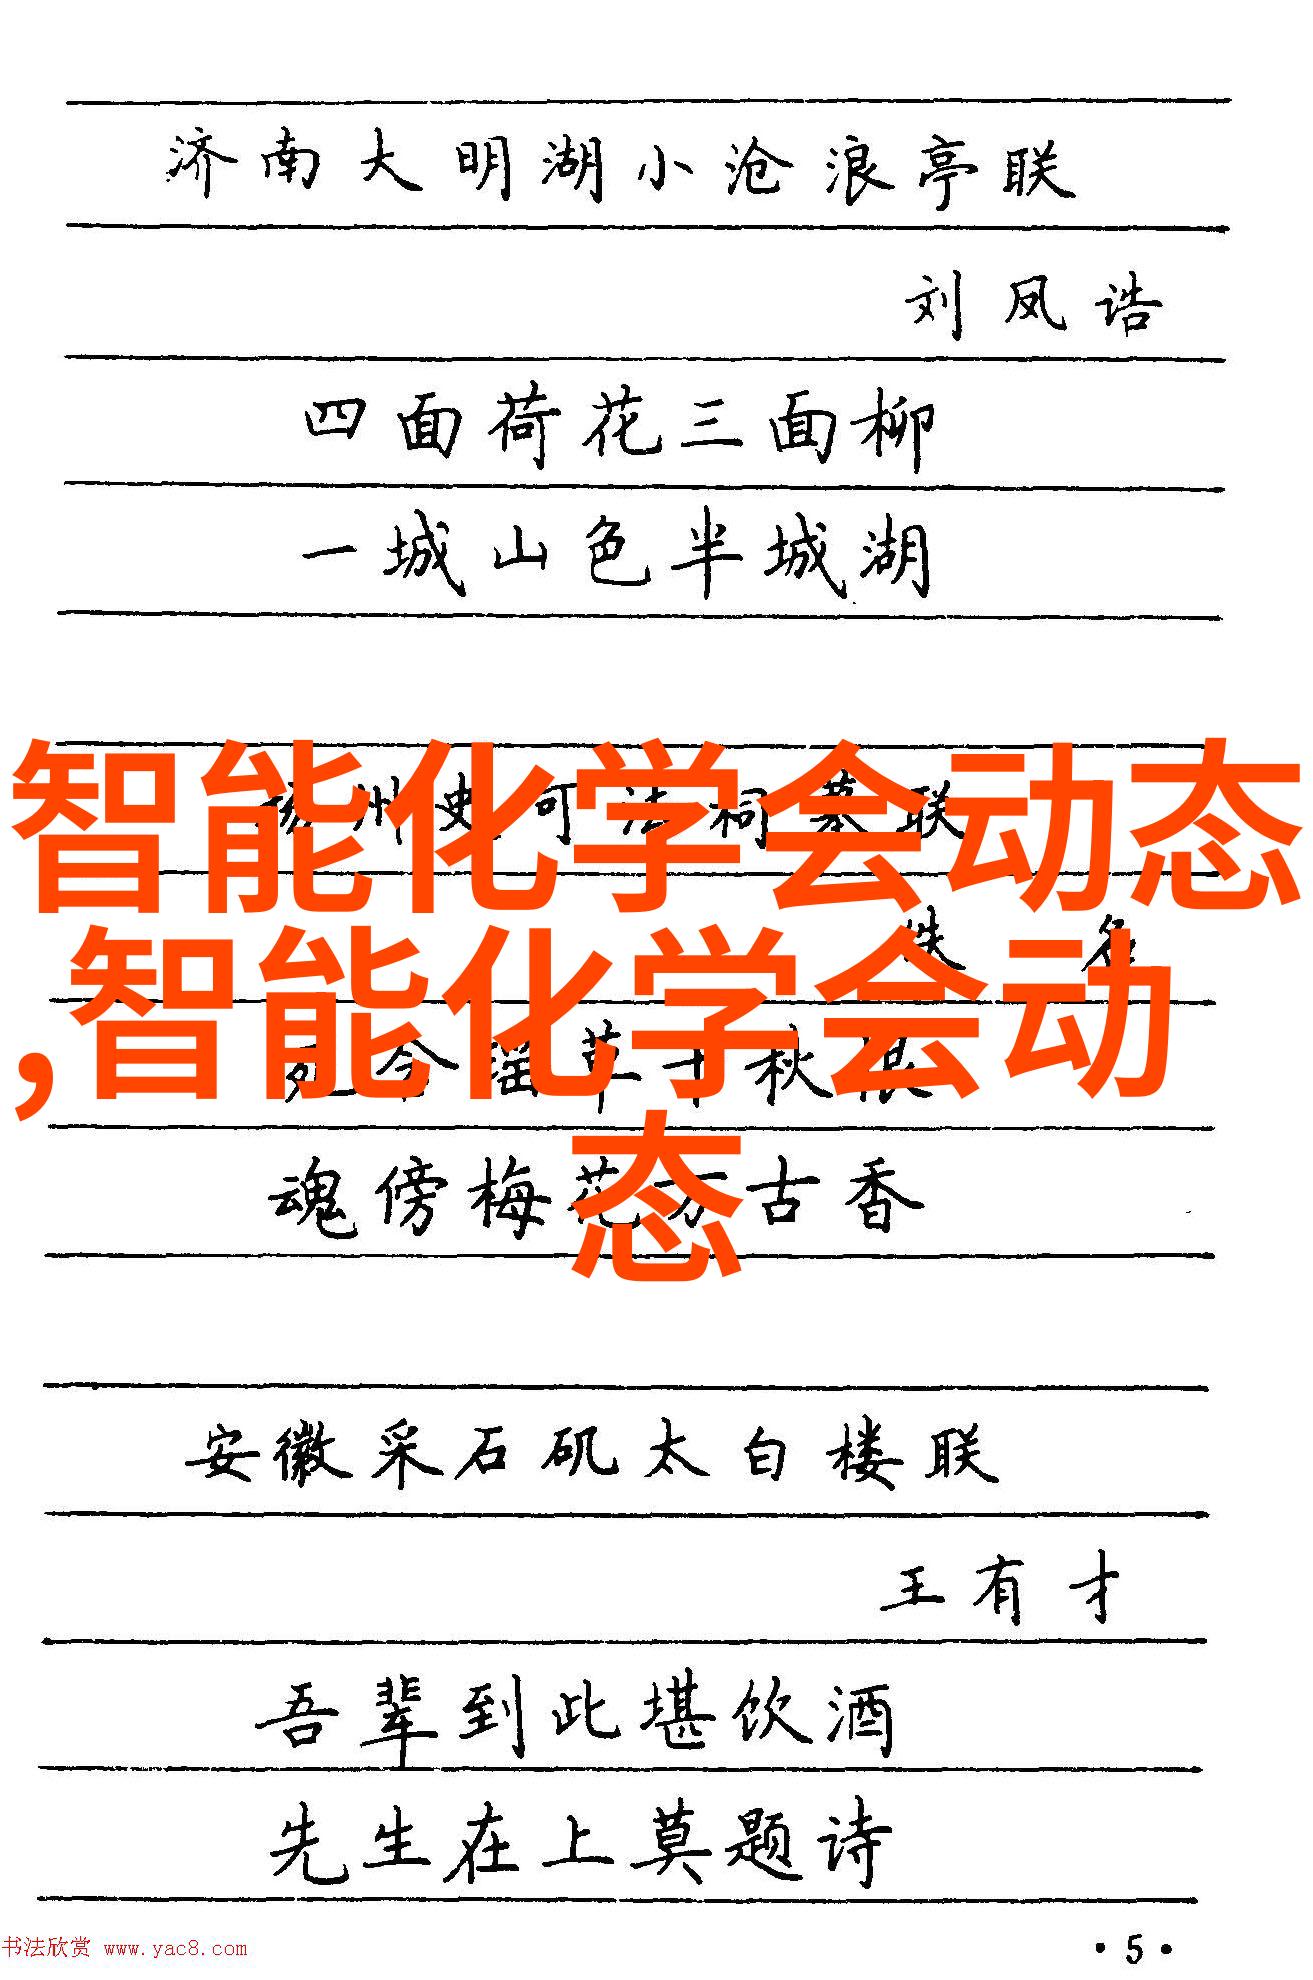 济南大明湖小沧浪亭联
刘凤诰
四面荷花三面柳
一城山色半城湖
智能化学会动态
州史可法祠墓联
佚名
,智能化学会动
今瑶草千秋恨
态
魂傍梅花万古香
安徽采石矶太白楼联
王有才
吾辈到此堪饮酒
先生在上莫题诗
书法欣赏 www.yac8.com
·5·